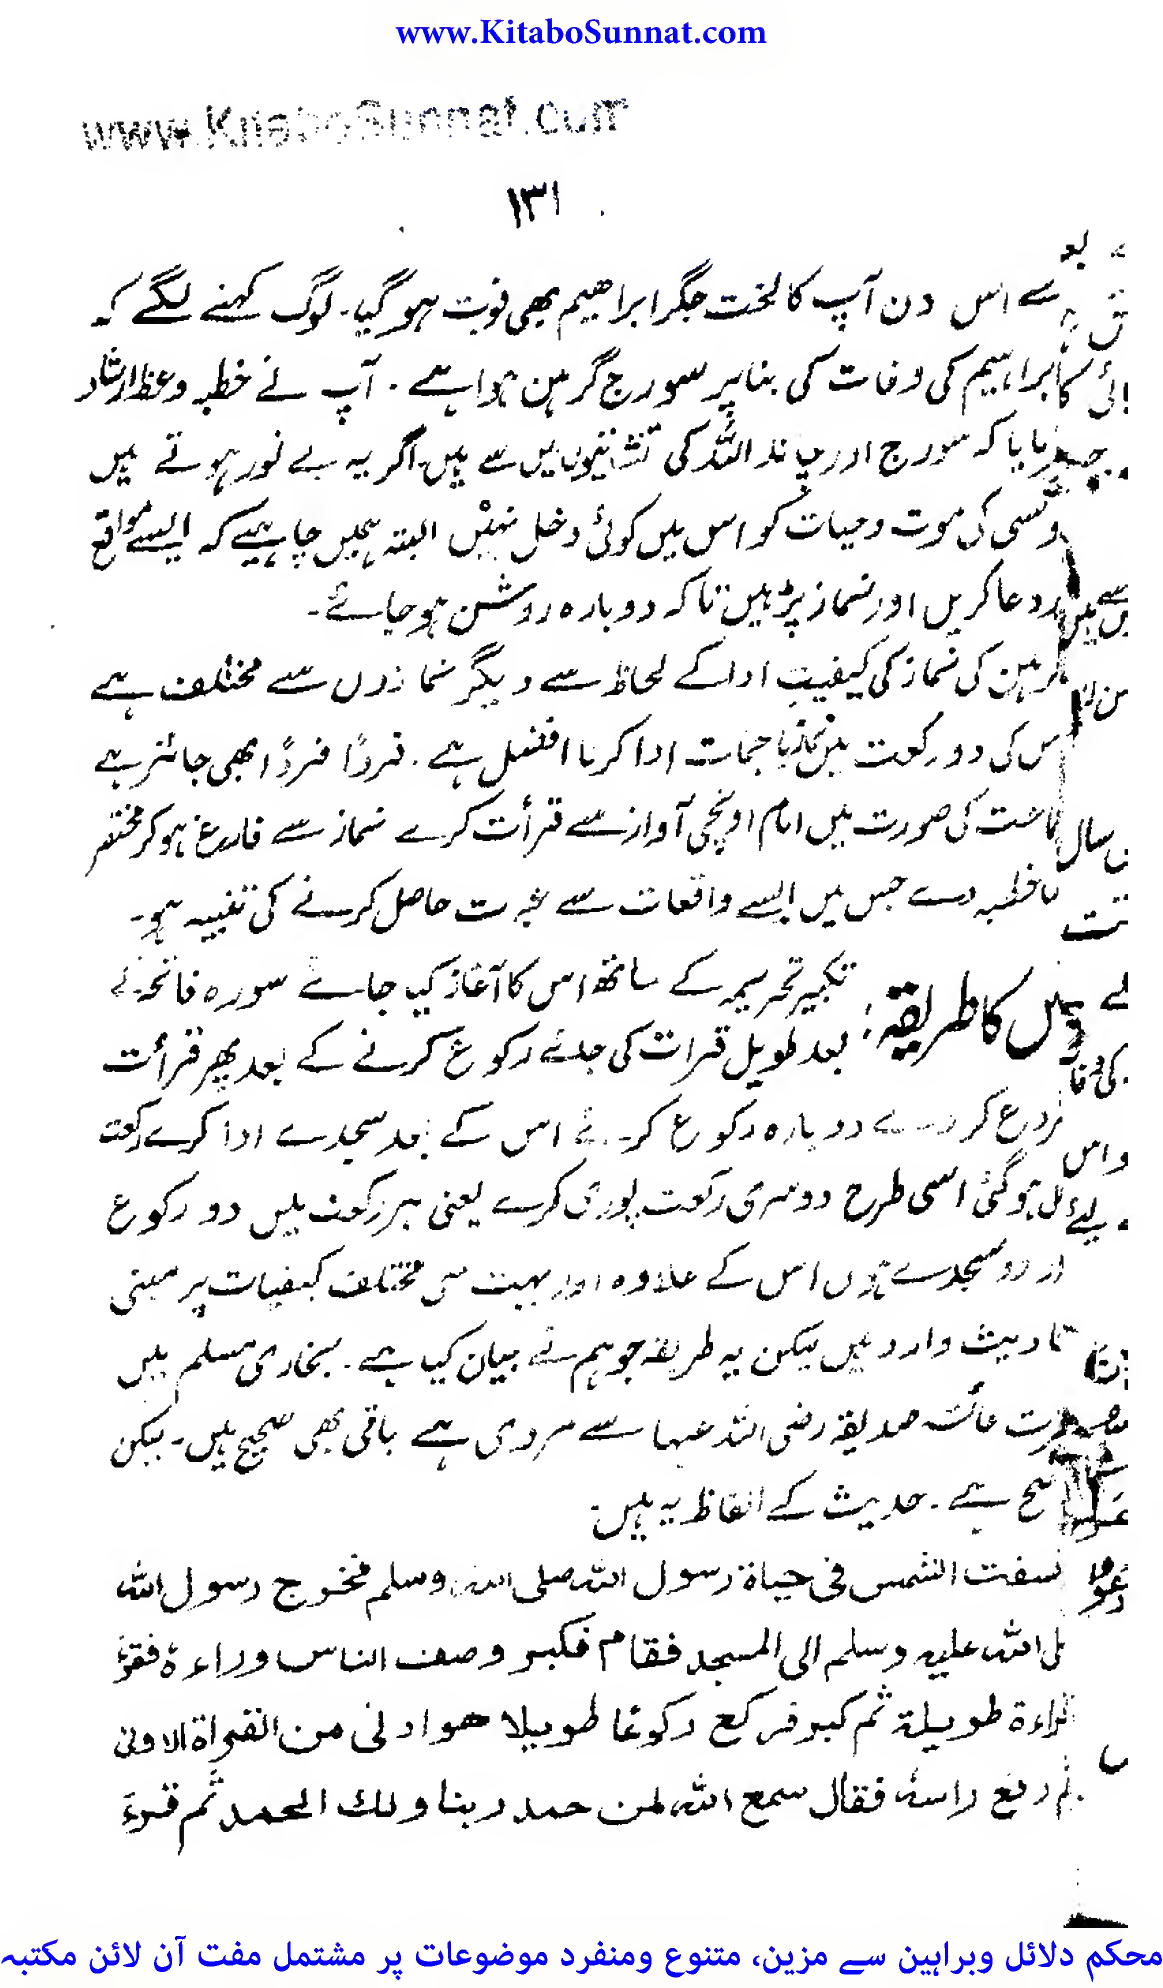 www.KitaboSunnat.com
www.KitaboSunnat.com
۱۳۱
سے اس دن آپ کا لخت جگر ابراھیم بھی فوت ہو گیا۔ لوگ کہنے لگے کہ
ابراہیم کی وفات کی بنا پر سورج گرہن ہوا ہے ۔ آپ نے خطبہ وعظ ارشاد
کہ سورج اور چاند اللہ کی نشانیوں میں سے ہیں۔ اگر یہ بے نور ہوتے ہیں
کسی کی موت وحیات کو اس میں کوئی دخل نہیں البتہ ہمیں چاہیے کہ ایسے مواقع
دعا کریں اور نماز پڑہیں تاکہ دوبارہ روشن ہو جائے۔
گرہن کی نماز کی کیفیت ادا کے لحاظ سے دیگر نمازوں سے مختلف ہے
س کی دو رکعت ہیں نماز باجماعت ادا کرنا افضل ہے ۔ فرداً فرداً بھی جائز ہے
ماعت کی صورت میں امام اونچی آواز سے قرأت کرے نماز سے فارغ ہو کر مختصر
سا خطبہ دے جس میں ایسے واقعات سے عبرت حاصل کرنے کی تنبیہ ہو۔
کا طریقہ: تکبیر تحریمہ کے ساتھ اس کا آغاز کیا جائے سورہ فاتحہ کے
بعد طویل قرات کی جائے رکوع کرنے کے بعد پھر قرأت
کر دے دوبارہ رکوع کرے اس کے بعد سجدے ادا کرے رکعت
ہو گئی اسی طرح دوسری رکعت پوری کرے یعنی ہر رکعت میں دو رکوع
دو سجدے ہوں اس کے علاوہ اور بہت سی مختلف کیفیات پر مبنی
حادیث وارد ہیں لیکن یہ طریقہ جو ہم نے بیان کیا ہے۔ بخاری مسلم میں
حضرت عائشہ صدیقہ رضی اللہ عنہا سے مروی ہے باقی بھی صحیح ہیں۔ لیکن
صح ہے ۔ حدیث کے الفاظ یہ ہیں۔
سفت الشمس فی حیاۃ رسول اللہ صلی اللہ وسلم فخرج رسول اللہ
لی اللہ علیہ وسلم الی المسجد فقام فکبر وصف الناس وراءہ فقرء
قراءۃ طویلۃ ثم کبر فرکع رکوعا طویلا ھو ادنی من القراۃ الاولیٰ
ثم رفع راسہ فقال سمع اللہ لمن حمد ربنا ولک الحمد ثم قرء
محکم دلائل وبراہین سے مزین، متنوع ومنفرد موضوعات پر مشتمل مفت آن لائن مکتبہ